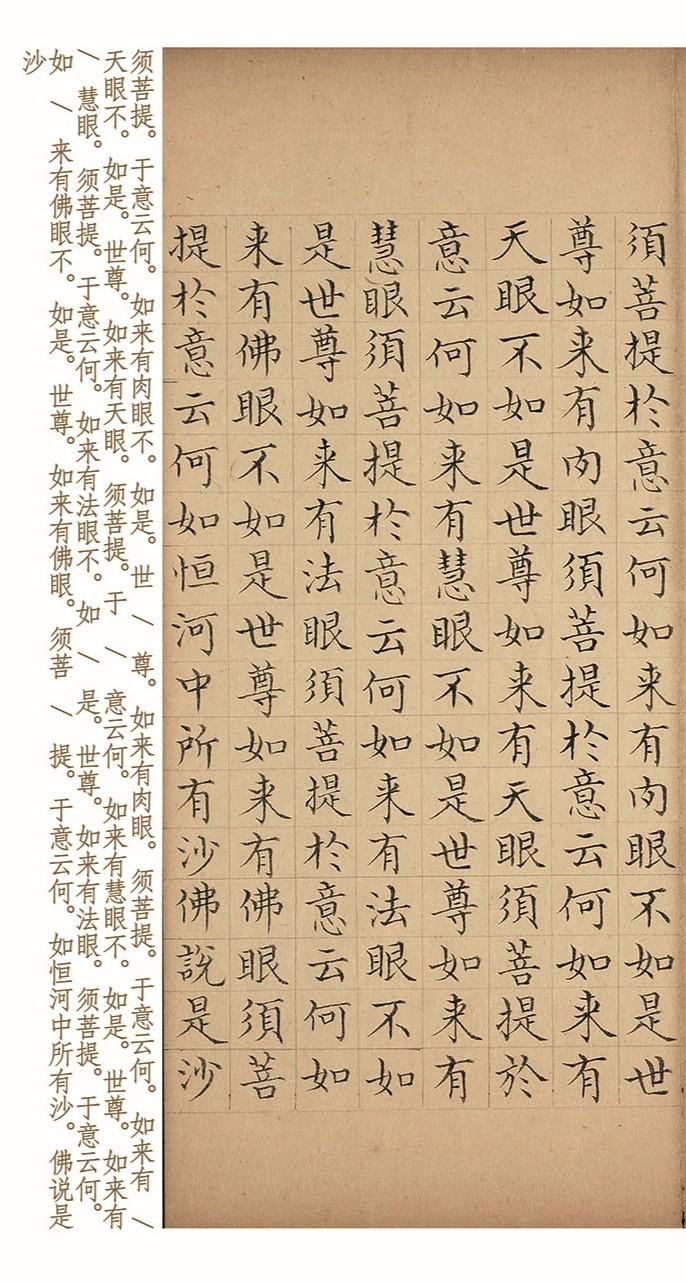 須菩提於意云何如来有肉眼不如是世
尊如来有肉眼須菩提於意云何如来有
天眼不如是世尊如来有天眼須菩提於
意云何如来有慧眼不如是世尊如来有
慧眼須菩提於意云何如来有法眼不如
是世尊如来有法眼須菩提於意云何如
来有佛眼不如是世尊如来有佛眼須菩
提於意云何如恒河中所有沙佛說是沙
须菩提。于意云何。如来有肉眼不。如是。世 / 尊。如来有肉眼。须菩提。于意云何。如来有 /
天眼不。如是。世尊。如来有天眼。须菩提。于 / 意云何。如来有慧眼不。如是。世尊。如来有
/ 慧眼。须菩提。于意云何。如来有法眼不。如 / 是。世尊。如来有法眼。须菩提。于意云何。
如 / 来有佛眼不。如是。世尊。如来有佛眼。须菩 / 提。于意云何。如恒河中所有沙。佛说是
沙